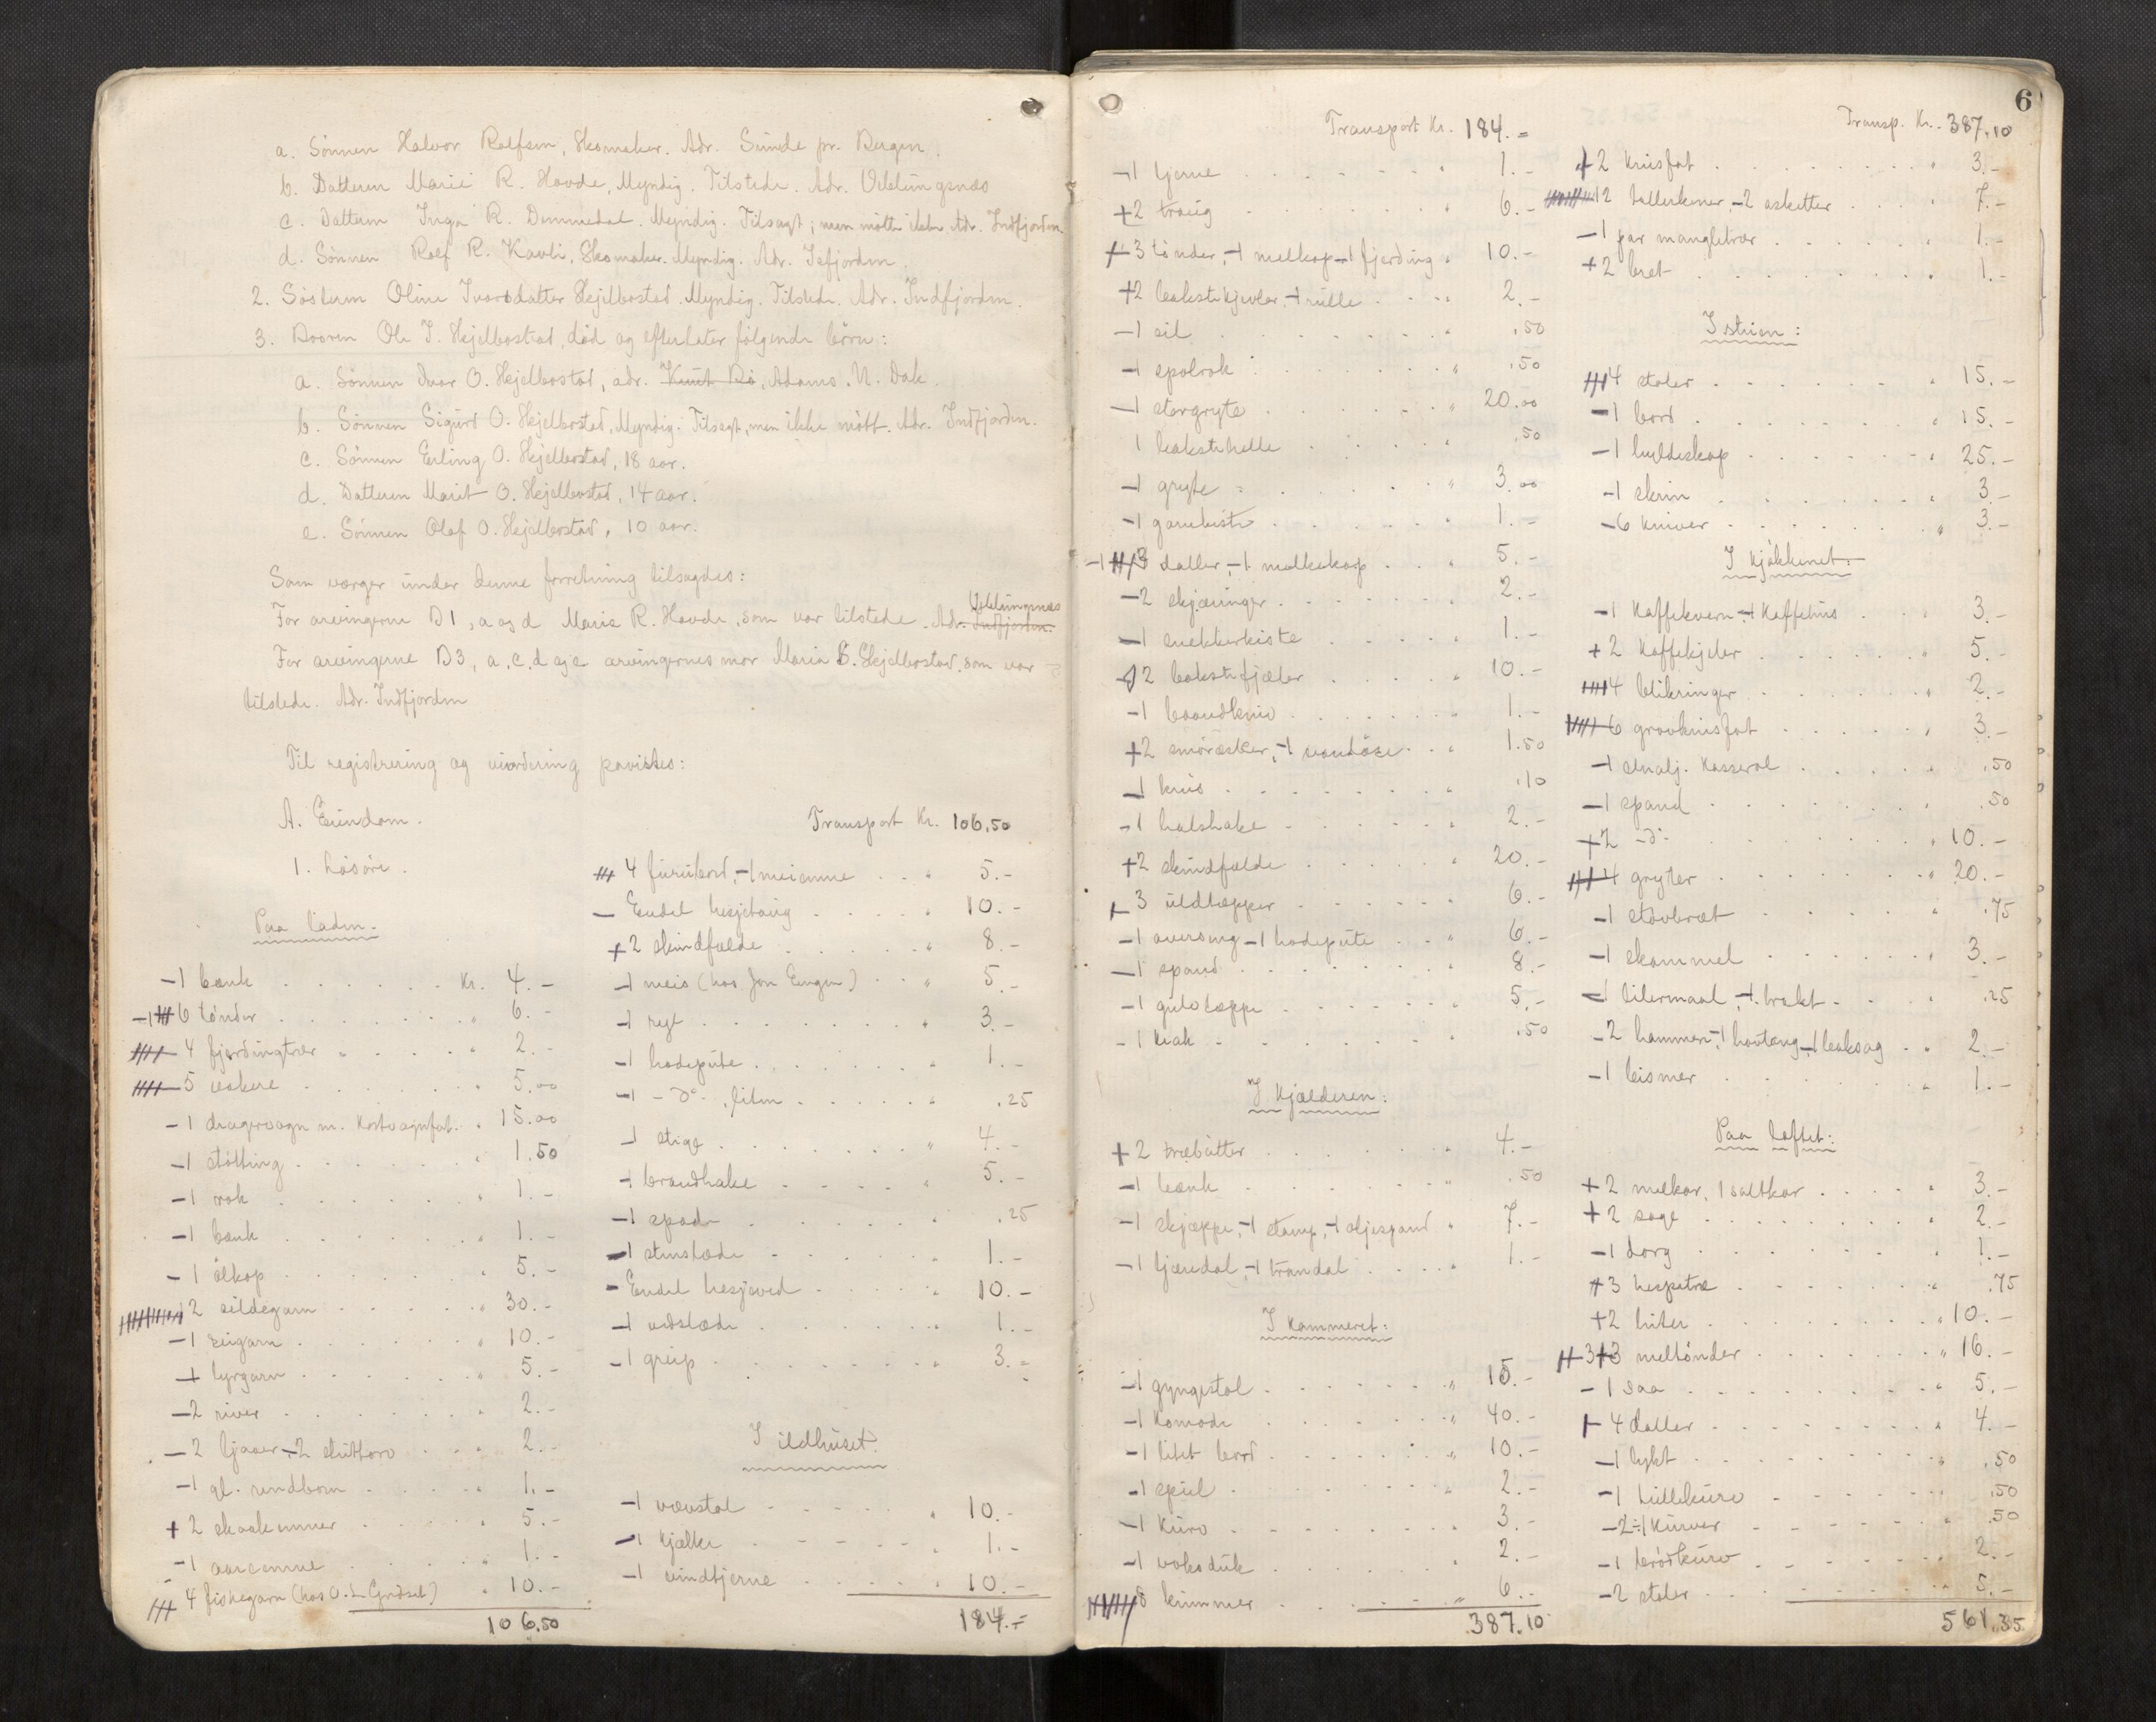 a. Sønnen Halvor Rolfsen, Skomaker. Adr. Sunde pr. Bergen.
b. Datteren Marie R. Hovde, Myndig. Tilstede. Adr. Veblungsnæs
c. Dattern Inga R. Dammedal. Myndig. Tilsagt, men møtte ikke Adr. Indfjorden.
d. Sønnen Rolf R. Kavli, Skomaker. Myndig. Adr. Isfjorden
2. Søsteren Oline Ivarsdatter Skjelbostad. Myndig. Tilstede. Adr. Indfjorden.
3. Broren Ole I. Skjelbostad, død og efterlater følgende børn:
a. Sønnen Ivar O. Skjelbostad, adr. Knut Rø, Adams. N. Dak.
b. Sønnen Sigurd O. Skjelbostad, Myndig. Tilsagt, men ikke møtt. Adr. Indfjorden.
c. Sønnen Erling O. Skjelbostad, 18 aar.
d. Datteren Marit O. Skjelbostad, 14 aar.
e. Sønnen Olaf O. Skjelbostad, 10 aar.
Som værger under denne forretning tilsagdes:
For arvingerne D1, a og d Marie R. Hovde, som var tilstede. Adr. Indfjorden. Veblungsnæs
For arvingerne D3, a, c, d og e arvingernes mor Maria S. Skjelbostad, som var
tilstede. Adr. Indfjorden
Til registrering og vurdering paavistes:
A. Eiendom.
1. Løsøre.
Paa laden.
-1 bænk Kr. 4.-
6 tønder " 6.-
4 fjerdingtrær " 2.-
5 vakere " 5.00
-1 dragevogn m. Kostvognfat. " 15.00
-1 støtting " 1.50
-1 rok " 1.-
-1 bænk " 1.-
-1 ølkop " 5.-
12 sildegarn " 30.-
-1 seigarn " 10.-
1 lyrgarn " 5.-
-2 river " 2.-
-2 ljaaer, -2 skuttorv " 2.-
-1 gl. rundbom " 1.-
+2 skaakemner " 5.-
-1 aareemne " 1.-
4 fiskegarn (hos O. L. Grødsel) " 10.-
106.50
Transport Kr. 106.50
4 furubord, -1 meiemne " 5.-
- Endel hesjetaug " 10.-
+2 skindfælde " 8.-
-1 meis (hos Jon Engen) " 5.-
-1 rygt " 3.-
-1 hodepute " 1.-
-1 -d°-, liten " .25
-1 stige " 4.-
-1 brandhake " 5.-
-1 spade " .25
-1 stenslæde " 1.-
- Endel hesjeved " 10.-
-1 vedslæde " 1.-
-1 greip " 3.=
I ildhuset.
-1 vævstol " 10.-
-1 kjælke " 1.-
-1 vindtjerne " 10.-
184.=
6
Transport Kr. 184.=
-1 kjerne " 1.-
+2 traug " 6.-
3 tønder, -1 melkop -1 fjerding " 10.-
+2 bakstekjevler, -1 rulle " 2.-
-1 sil " .50
-1 spolrok " .50
-1 storgryte " 20.00
1 bakstehelle " .50
-1 gryte " 3.00
-1 garnkiste " 1.-
3 daller, -1 melkekop " 5.-
-2 skjæringer " 2.-
-1 snekkerkiste " 1.-
2 bakstefjæler " 10.-
-1 baandkniv " 1.-
+2 smøræsker, -1 vandøse " 1.50
-1 krus " .10
-1 halshake " 2.-
+2 skindfælde " 20.-
3 uldtæpper " 6.-
-1 overseng -1 hodepute " 6.-
-1 spand " 8.-
-1 gulvtæppe " 5.-
-1 krak " .50
I kjælderen:
+2 træbøtter " 4.-
-1 bænk " .50
-1 skjæppe, -1 stamp, -1 oljespand " 7.-
-1 tjæredal, -1 trandal " 1.-
I kammeret:
-1 gyngestol " 15.-
-1 Komode " 40.-
-1 litet bord " 10.-
-1 speil " 2.-
-1 Kurv " 3.-
-1 voksduk " 2.-
8 krummer " 6.-
387.10
Transp. Kr. 387.10
+2 krusfat " 3.-
12 tallerkener, -2 asketter " 7.-
-1 par mangletrær " 1.-
+2 bret " 1.-
I stuen:
4 stoler " 15.-
-1 bord " 15.-
-1 hyldeskap " 25.-
-1 skrin " 3.-
-6 kniver " 3.-
I kjøkkenet:
-1 Kaffekvern -1 Kaffehus " 3.-
+2 Kaffekjeler " 5.-
4 blikringer " 2.-
6 grovkrusfat " 3.-
-1 emalj. Kasserol " .50
-1 spand " .50
+2 -d°- " 10.-
4 gryter " 20.-
-1 støvbræt " .75
-1 skammel " 3.-
-1 litermaal, -1 trakt " .25
-2 hammere, -1 hovtang, -1 baksag " 2.-
-1 bismer " 1.-
Paa loftet:
+2 melkar, 1 saltkar " 3.-
+2 sage " 2.-
-1 dorg " 1.-
+3 hespetræ " .75
+2 huder " 10.-
3 meltønder " 16.-
-1 saa " 5.-
4 daller " 4.-
-1 lykt " .50
-1 kurv " .50
-2 kurver " .50
-1 brødkurv " 2.-
-2 stoler " 5.-
561.35